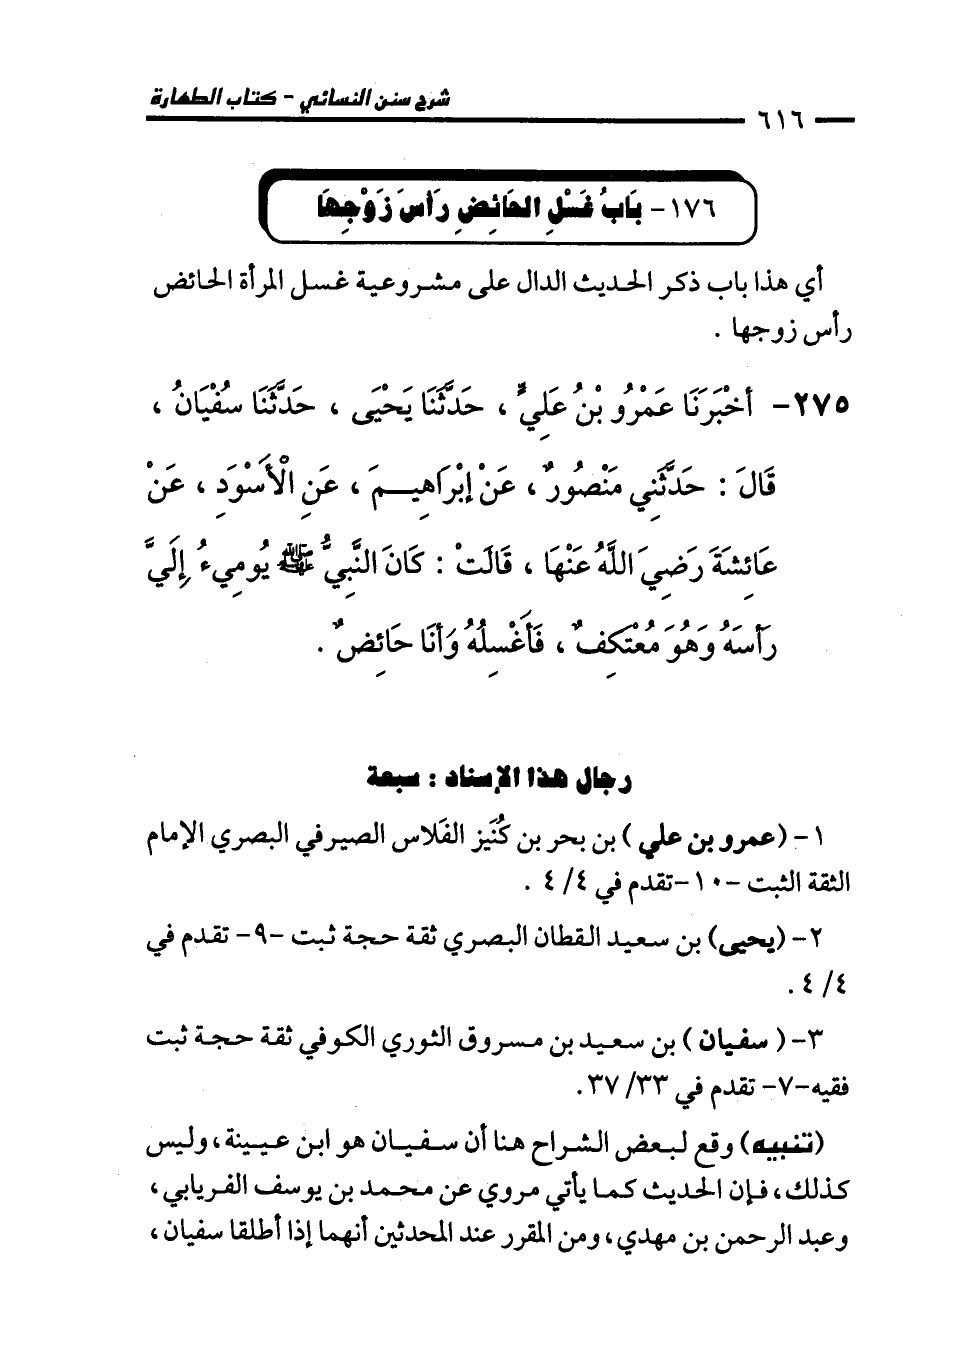 شرح سنن النسائي - كتاب الطهارة
٦١٦
١٧٦- بَابُ غَسْلِ الحَائِضِ رَأسَ زَوْجِهَا
أي هذا باب ذكر الحديث الدال على مشروعية غسل المرأة الحائض
رأس زوجها .
٢٧٥- أخْبَرَنَا عَمْرُو بْنُ عَلِيٍّ ، حَدَّثَنَا يَحْيَى ، حَدَّثَنَا سُفْيَانُ ،
قَالَ : حَدَّثَنِي مَنْصُورٌ ، عَنْ إبْرَاهِيمَ ، عَنِ الْأَسْوَدِ ، عَنْ
عَائِشَةَ رَضِيَ اللَّهُ عَنْهَا ، قَالَتْ : كَانَ النَّبِيُّ ﷺ يُومِيءُ إِلَيَّ
رَأسَهُ وَهُوَ مُعْتَكِفٌ ، فَأَغْسِلُهُ وَأنَا حَائِضٌ .
رجال هذا الإسناد : سبعة
١- (عمرو بن علي ) بن بحر بن كُنَيز الفَلاس الصيرفي البصري الإمام
الثقة الثبت -١٠-تقدم في ٤/ ٤ .
٢- (يحيى) بن سعيد القطان البصري ثقة حجة ثبت -٩- تقدم في
٤/ ٤ .
٣- ( سفيان ) بن سعيد بن مسروق الثوري الكوفي ثقة حجة ثبت
فقيه-٧- تقدم في ٣٣/ ٣٧.
(تنبيه) وقع لبعض الشراح هنا أن سفيان هو ابن عيينة، وليس
كذلك، فإن الحديث كما يأتي مروي عن محمد بن يوسف الفريابي،
وعبد الرحمن بن مهدي، ومن المقرر عند المحدثين أنهما إذا أطلقا سفيان،